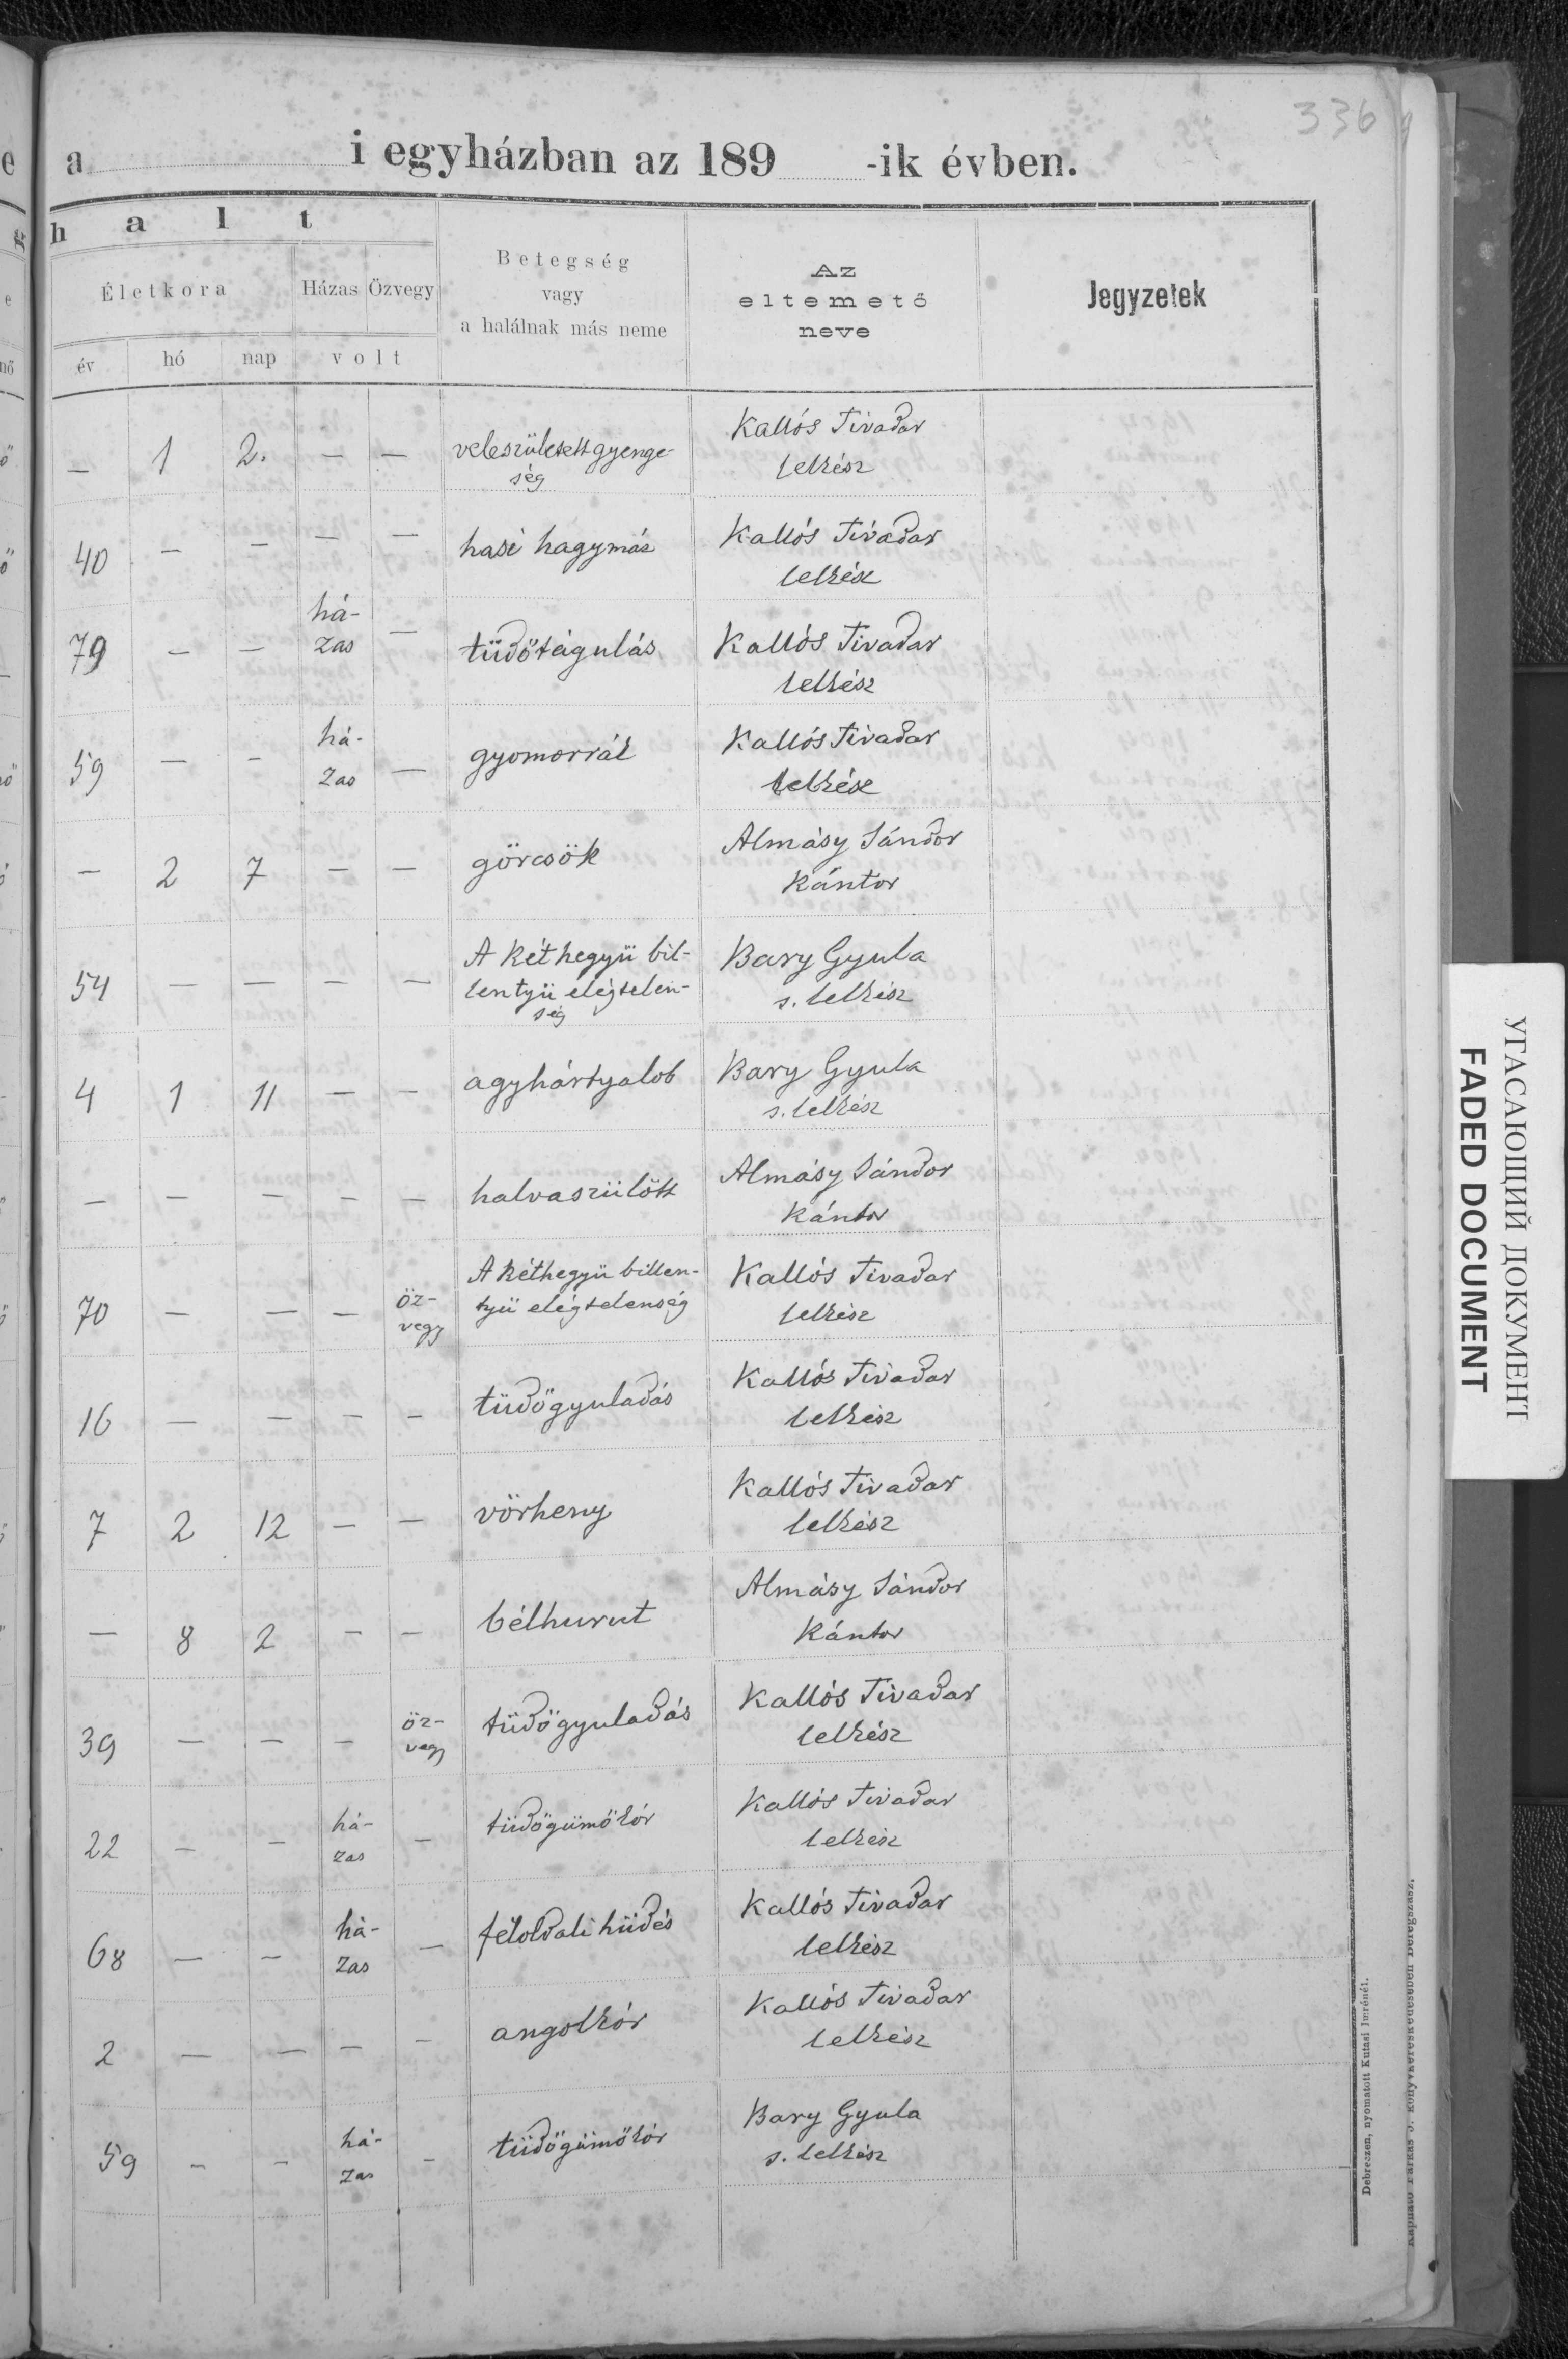 336
a i egyházban az 189 -ik évben.
h a l t
Életkora
Házas Özvegy
Betegség
vagy
a halálnak más neme
Az
eltemető
neve
Jegyzetek
év hó nap volt
— 1 2. — — veleszületett gyenge-
ség
Kallós Tivadar
lelkész
40 — — — — hasi hagymáz
Kallós Tivadar
lelkész
79 — — há-
zas
— tüdőtágulás
Kallós Tivadar
lelkész
59 — — há-
zas
— gyomorrák
Kallós Tivadar
lelkész
— 2 7 — — görcsök
Almásy Sándor
kántor
54 — — — — A kéthegyü bil-
lentyü elégtelen-
ség
Bary Gyula
s. lelkész
4 1 11 — — agyhártyalob
Bary Gyula
s. lelkész
— — — — — halvaszülött
Almásy Sándor
kántor
70 — — — öz-
vegy
A kéthegyü billen-
tyü elégtelenség
Kallós Tivadar
lelkész
16 — — — — tüdőgyuladás
Kallós Tivadar
lelkész
7 2 12 — — vörheny
Kallós Tivadar
lelkész
— 8 2 — — bélhurut
Almásy Sándor
kántor
39 — — — öz-
vegy
tüdőgyuladás
Kallós Tivadar
lelkész
22 — — há-
zas
— tüdőgümőkór
Kallós Tivadar
lelkész
68 — — há-
zas
— féloldali hüdés
Kallós Tivadar
lelkész
2 — — — — angolkór
Kallós Tivadar
lelkész
59 — — há-
zas
— tüdőgümőkór
Bary Gyula
s. lelkész
Debreczen, nyomatott Kutasi Imrénél.
Kapható Farkas J. könyvkereskedésében Beregszász.
УГАСАЮЩИЙ ДОКУМЕНТ
FADED DOCUMENT